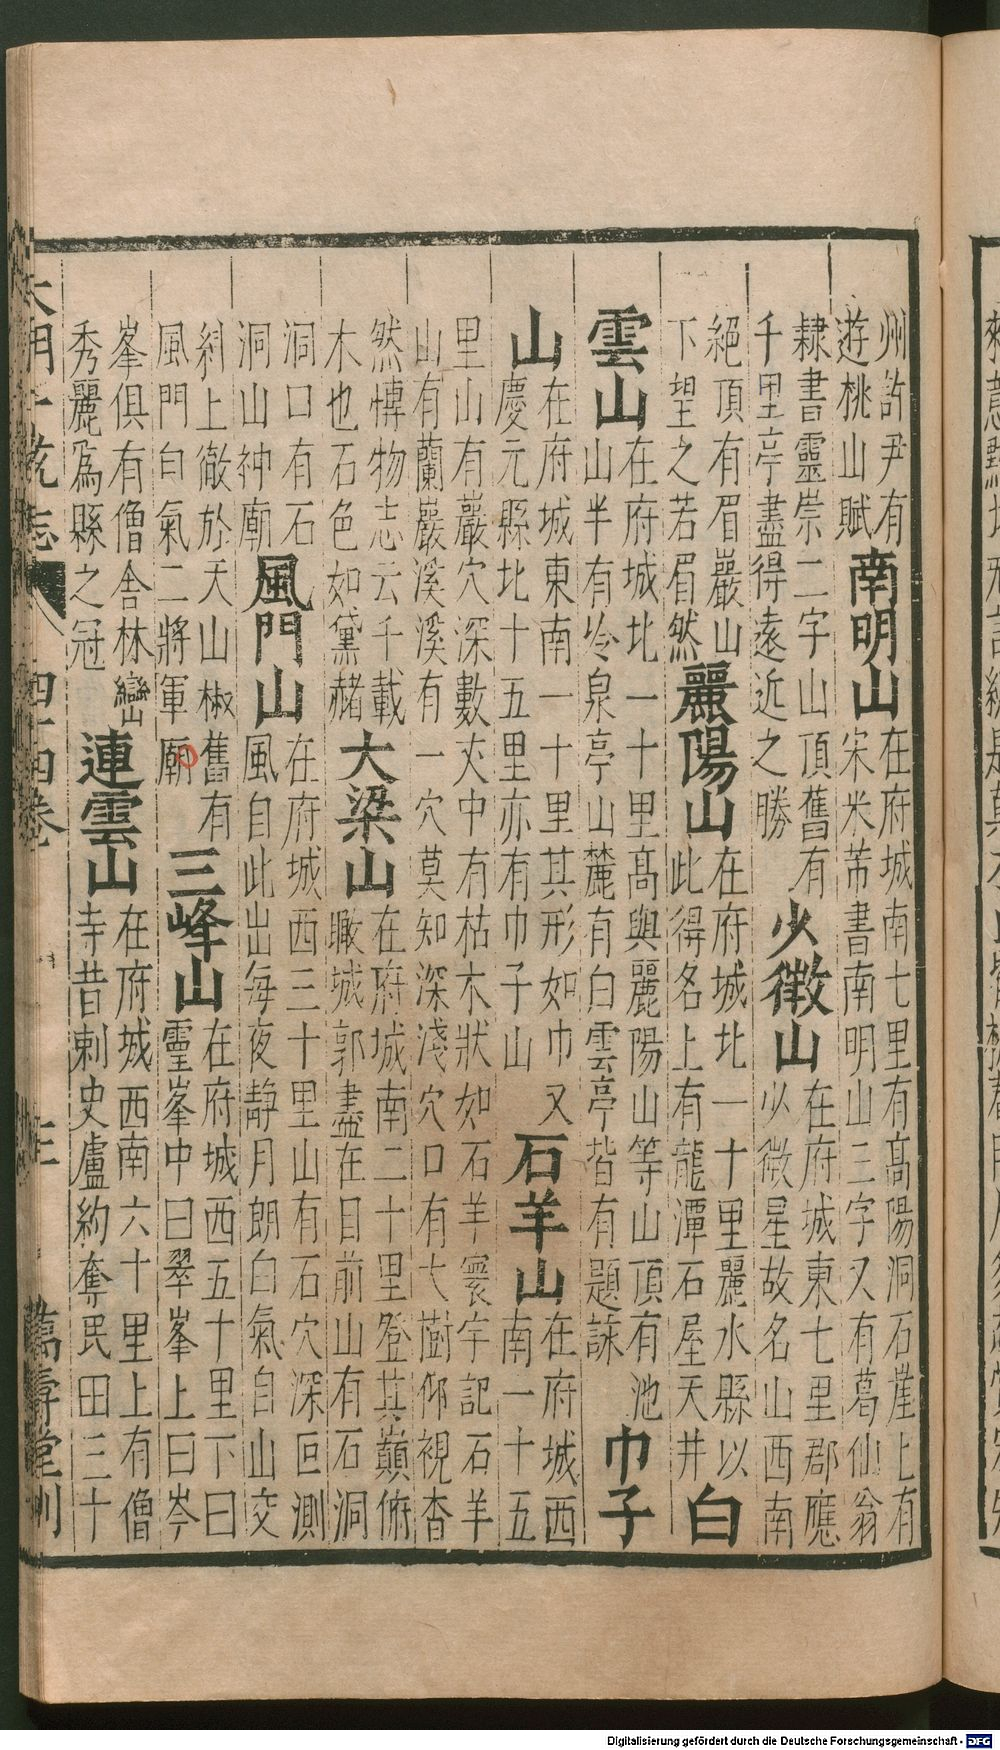 州許尹有遊桃山賦南明山在府城南七里有高陽洞石崖上有宋米芾書南明山三字又有葛仙翁
隸書靈崇二字山頂舊有千里亭盡得遠近之勝火徵山在府城東七里郡應以微星故名山西南
絕頂有眉巖山下望之若眉然麗陽山在府城北一十里麗水縣以此得名上有龍潭石屋天井白
雲山在府城北一十里高與麗陽山等山頂有池山半有冷泉亭山麓有白雲亭皆有題詠巾子
山在府城東南一十里其形如巾又慶元縣北十五里亦有巾子山石羊山在府城西南一十五
里山有巖穴深數丈中有枯木狀如石羊寰宇記石羊山有蘭巖溪溪有一穴莫知深淺穴口有大樹仰視杳
然博物志云千載木也石色如黛赭大梁山在府城南二十里登其巔俯瞰城郭盡在目前山有石洞
洞口有石洞山神廟風門山在府城西三十里山有石穴深叵測風自此出每夜靜月朗白氣自山交
糾上徹於天山椒舊有風門白氣二將軍廟三峰山在府城西五十里下曰靈峯中曰翠峯上曰岑
峯俱有僧舍林巒秀麗爲縣之冠連雲山在府城西南六十里上有僧寺昔刺史盧約奪民田三十
大明一統志 四十四卷 萬壽堂刊
Digitalisierung gefördert durch die Deutsche Forschungsgemeinschaft - DFG